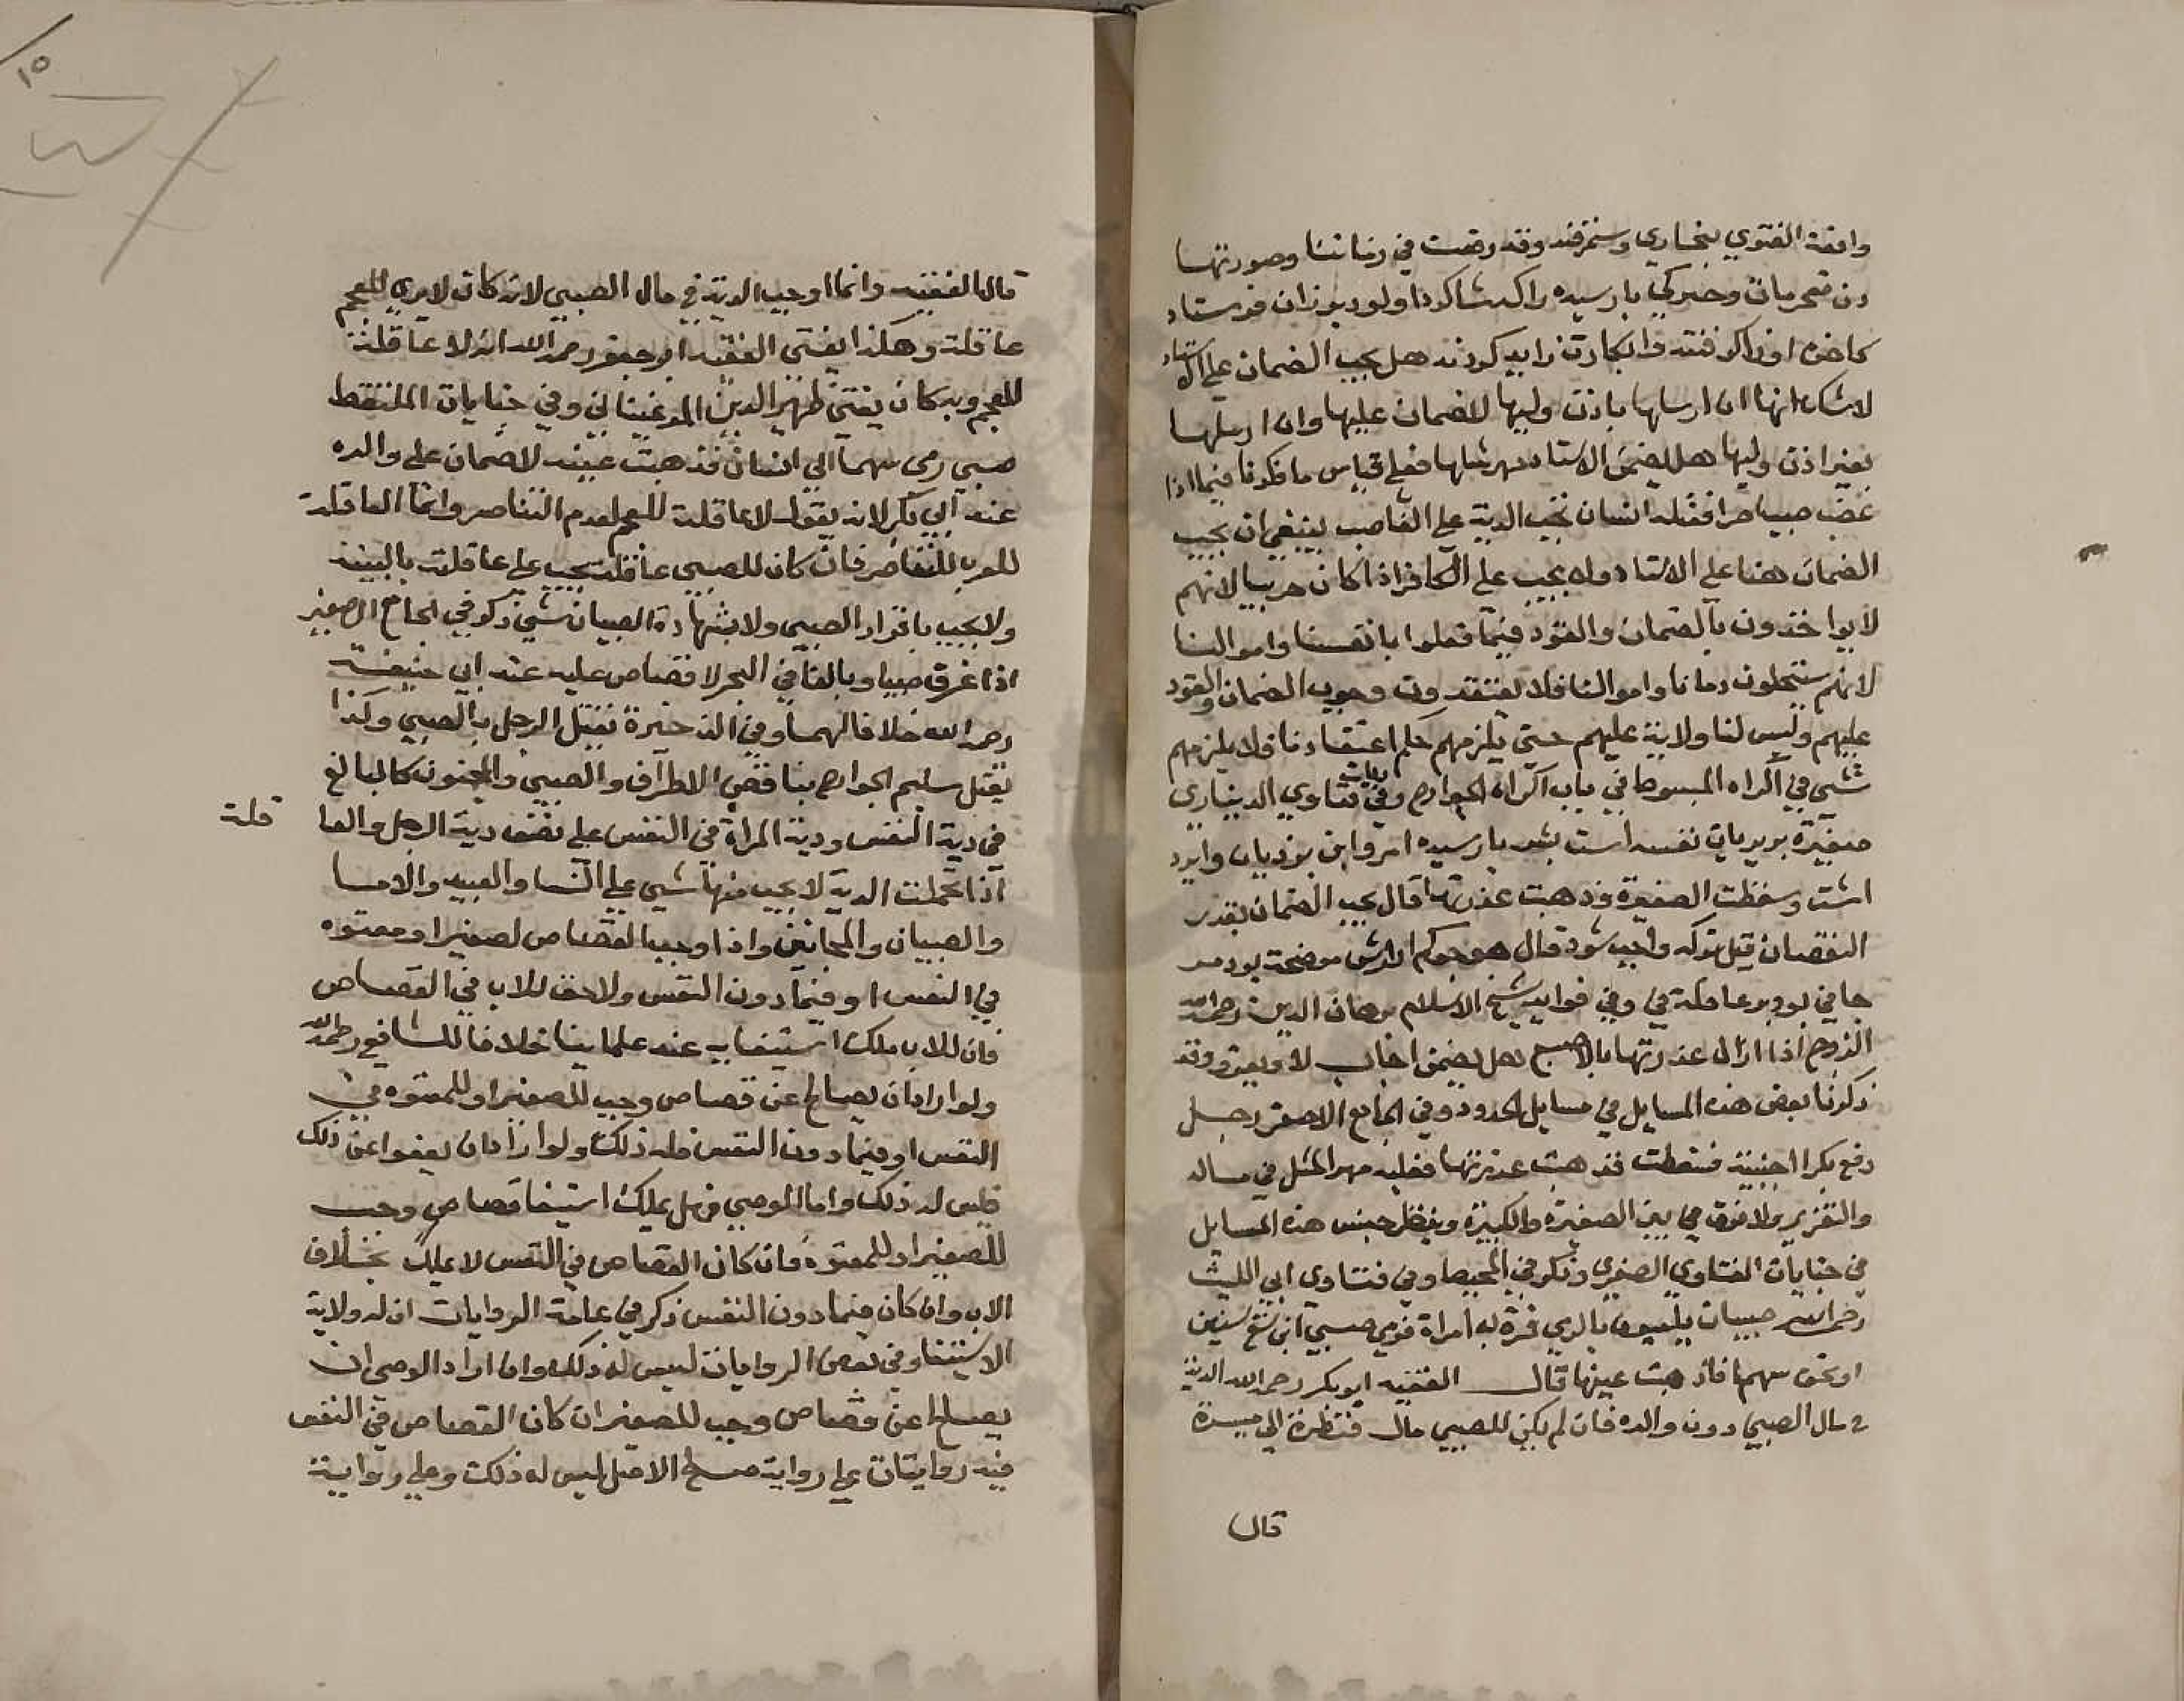 واقعة الفتوي ببخاري وسمرقند وقد وقعت في زماننا وصورتها
لاشك انها ان ارسلها باذن وليها لا ضمان عليها وان ارسلها
بغير اذن وليها هل يضمن الاستاد مهر مثلها فعلي قياس ما ذكرنا فيما اذا
غصب صبيا حرا فقتله انسان تجب الدية علي الغاصب ينبغي ان يجب
الضمان هنا علي الاستاد ولا يجب علي الكافر اذا كان حربيا لانهم
لا يواخذون بالضمان والقود فيما فعلوا بانفسنا واموالنا
لانهم يستحلون دمانا واموالنا فلا يعتقدون وجوب الضمان والقود
عليهم وليس لنا ولاية عليهم حتي يلزمهم حكم اعتقادنا فلا يلزمهم
شي في اكراه المبسوط في باب اكراه الخوارج وفي فتاوي الديناري
وسقطت الصغيرة فذهبت عذرتها قال يجب الضمان بقدر
النقصان
وفي فوايد شيخ الاسلام برهان الدين رحمه الله
الزوج اذا ازال عذرتها بالاصبع هل يضمن اجاب لا ويعزر وقد
ذكرنا بعض هذه المسايل في مسايل الحدود وفي الجامع الاصغر رجل
دفع بكرا اجنبية فسقطت فذهبت عذرتها فعليه مهر المثل في ماله
والتعزير ولا فرق بين الصغيرة والكبيرة وينظر جنس هذه المسايل
في جنايات الفتاوي الصغري وذكر في المحيط وفي فتاوي ابي الليث
رحمه الله صبيان يلعبون بالرمي فمرت امراة فرمي صبي ابن تسع سنين
او نحوه سهما فاذهبت عينها قال الفقيه ابو بكر رحمه الله الدية
في مال الصبي دون والده فان لم يكن للصبي مال فنظرة الي ميسرة
قال
قال الفقيه وانما اوجب الدية في مال الصبي لانه كان لا يري للعجم
عاقلة وهكذا يفتي الفقيه ابو جعفر رحمه الله انه لا عاقلة
للعجم وبه كان يفتي ظهير الدين المرغيناني وفي جنايات الملتقط
صبي رمي سهما الي انسان فذهبت عينه لا ضمان علي والده
عند ابي بكر لانه يقول لا عاقلة للعجم لعدم التناصر وانما العاقلة
للعرب للتناصر فان كان للصبي عاقلة تجب علي عاقلته بالبينة
ولا يجب باقرار الصبي ولا بشهادة الصبيان شي ذكر في الجامع الصغير
اذا غرق صبيا او بالغا في البحر لا قصاص عليه عند ابي حنيفة
رحمه الله خلافا لهما وفي الذخيرة يقتل الرجل بالصبي وكذا
يقتل سليم الجوارح بناقص الاطراف والصبي والمجنون كالبالغ
في دية النفس ودية المراة في النفس علي نصف دية الرجل والعا
قلة
اذا تحملت الدية لا يجب منها شي علي النسا والعبيد والاما
والصبيان والمجانين واذا وجب القصاص لصغير او معتوه
في النفس او فيما دون النفس ولا حق للاب في القصاص
فان للاب ملك استيفايه عند علماينا خلافا للشافعي رحمه الله
ولو اراد ان يصالح عن قصاص وجب للصغير او للمعتوه في
النفس او فيما دون النفس فله ذلك ولو اراد ان يعفوا عن ذلك
فليس له ذلك واما الوصي هل يملك استيفا قصاص وجب
للصغير او للمعتوه فان كان القصاص في النفس لا يملك بخلاف
الاب وان كان فيما دون النفس ذكر في عامة الروايات ان له ولاية
الاستيفا وفي بعض الروايات ليس له ذلك وان اراد الوصي ان
يصالح عن قصاص وجب للصغير ان كان القصاص في النفس
فيه روايتان علي رواية صلح الاصل ليس له ذلك وعلي رواية